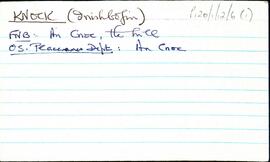 KNOCK (Inishbofin) P120/1/2/6 (1)
FNB: An Cnoc, the hill
OS. Placenames Dept: An Cnoc